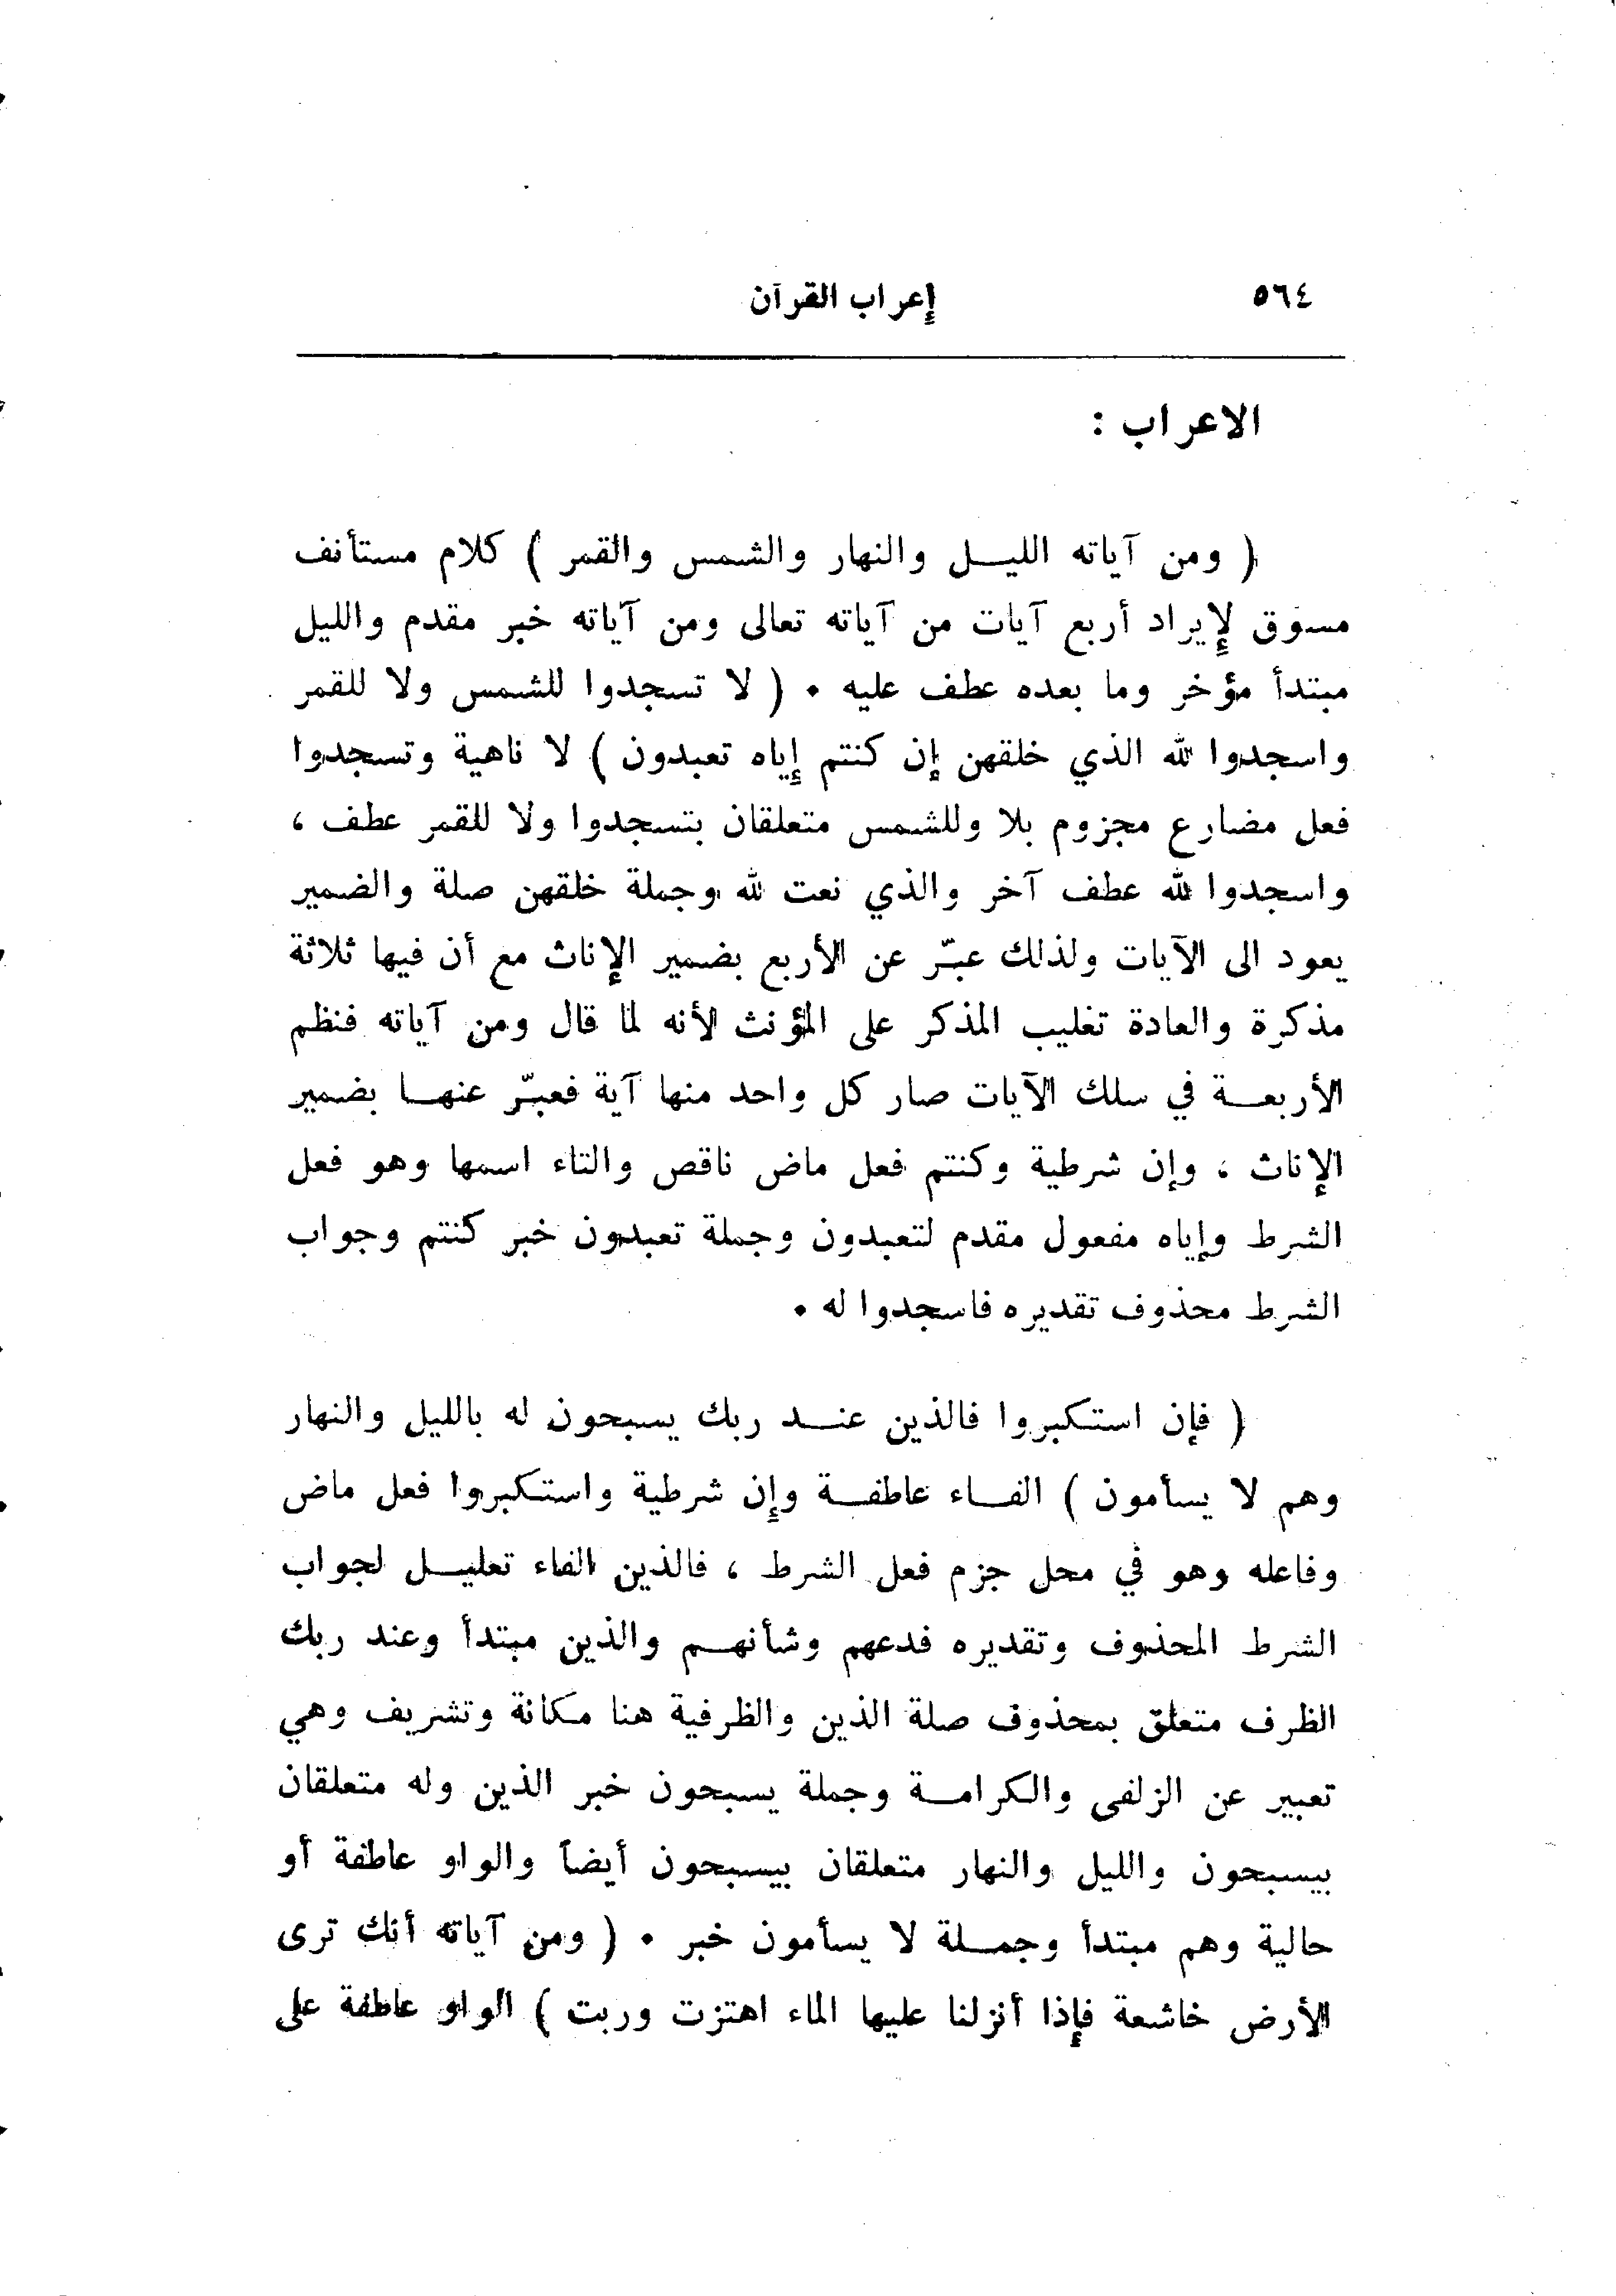 ٥٦٤ إعراب القرآن
الاعراب :
( ومن آياته الليل والنهار والشمس والقمر ) كلام مستأنف
مسوق لإيراد أربع آيات من آياته تعالى ومن آياته خبر مقدم والليل
مبتدأ مؤخر وما بعده عطف عليه . ( لا تسجدوا للشمس ولا للقمر
واسجدوا لله الذي خلقهن إن كنتم إياه تعبدون ) لا ناهية وتسجدوا
فعل مضارع مجزوم بلا وللشمس متعلقان بتسجدوا ولا للقمر عطف ،
واسجدوا لله عطف آخر والذي نعت لله وجملة خلقهن صلة والضمير
يعود الى الآيات ولذلك عبّر عن الأربع بضمير الإناث مع أن فيها ثلاثة
مذكرة والعادة تغليب المذكر على المؤنث لأنه لما قال ومن آياته فنظم
الأربعة في سلك الآيات صار كل واحد منها آية فعبّر عنها بضمير
الإناث ، وإن شرطية وكنتم فعل ماض ناقص والتاء اسمها وهو فعل
الشرط وإياه مفعول مقدم لتعبدون وجملة تعبدون خبر كنتم وجواب
الشرط محذوف تقديره فاسجدوا له .
( فإن استكبروا فالذين عند ربك يسبحون له بالليل والنهار
وهم لا يسأمون ) الفاء عاطفة وإن شرطية واستكبروا فعل ماض
وفاعله وهو في محل جزم فعل الشرط ، فالذين الفاء تعليل لجواب
الشرط المحذوف وتقديره فدعهم وشأنهم والذين مبتدأ وعند ربك
الظرف متعلق بمحذوف صلة الذين والظرفية هنا مكانة وتشريف وهي
تعبير عن الزلفى والكرامة وجملة يسبحون خبر الذين وله متعلقان
بيسبحون والليل والنهار متعلقان بيسبحون أيضاً والواو عاطفة أو
حالية وهم مبتدأ وجملة لا يسأمون خبر . ( ومن آياته أنك ترى
الأرض خاشعة فإذا أنزلنا عليها الماء اهتزت وربت ) الواو عاطفة على